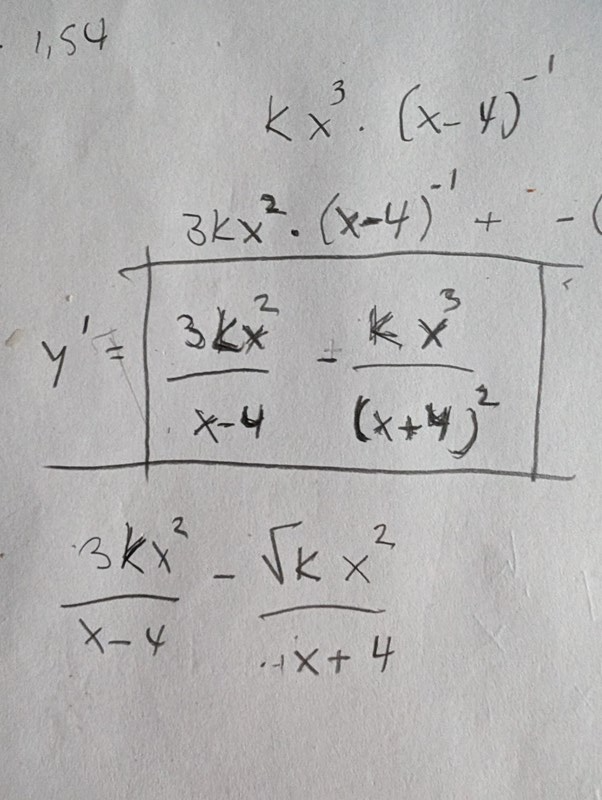 . 1,54
kx³ . (x-4)⁻¹
3kx² . (x-4)⁻¹ + - (
y' = 3kx²/x-4 - kx³/(x+4)²
3kx²/x-4 - √k x²/x+4